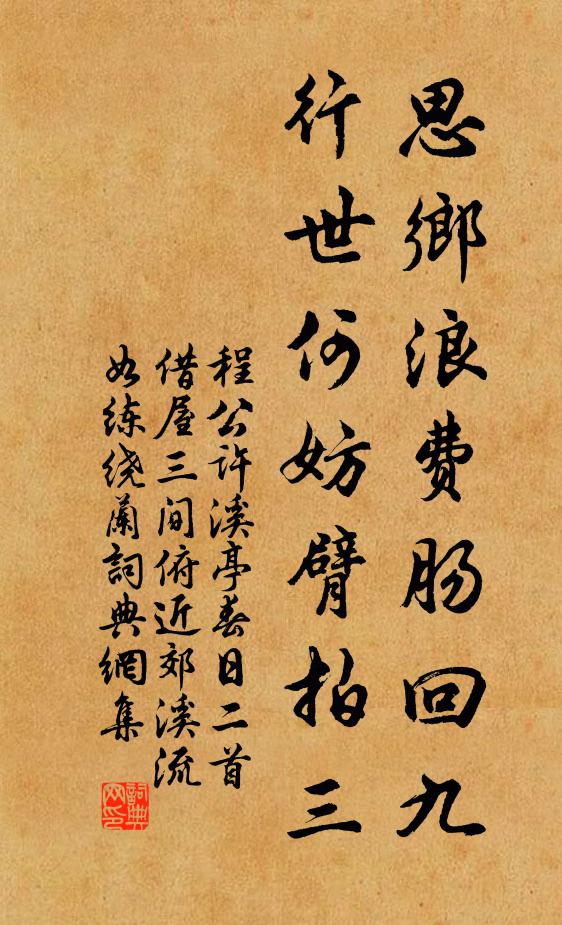 思鄉浪費肠回九
行世何妨臂拍三
程公许溪亭春日二首
借屋三间俯近郊溪流
如练绕蘭詞典網集
詞典网印